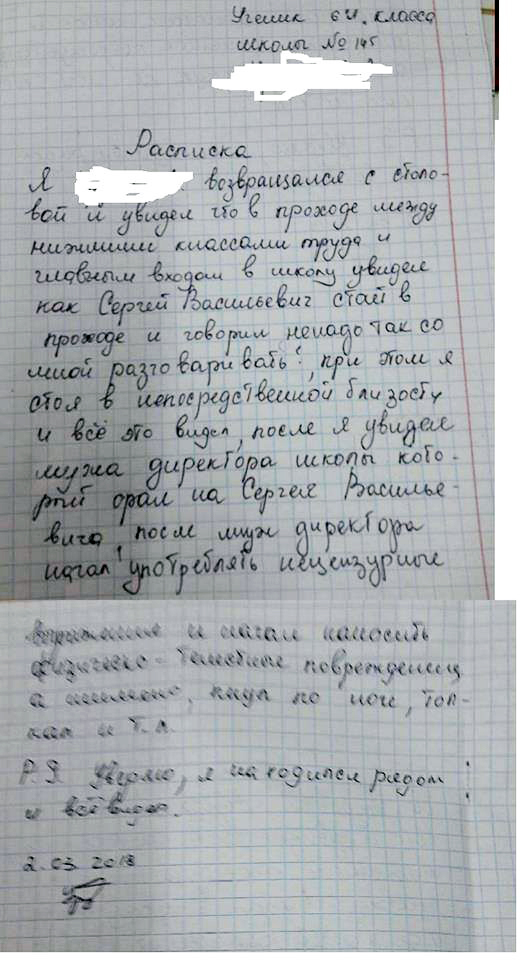 Ученик 6 И. класса
школы № 145
Расписка
Я возвращался с столо-
вой и увидел что в проходе между
нижними классами труда и
главным входом в школу увидел
как Сергей Васильевич стаял в
проходе и говорил ненадо так со
мной разговаривать!, при этом я
стоя в непосредственной близосту
и всё это видел, после я увидел
мужа директора школы кото-
рый орал на Сергея Василье-
вича, после муж директора
начал употреблять нецензурные
выражения и начал наносить
физическо-телесные повреждения
а именно, пнул по ноге, тол-
кал и т.п.
P.S. Уверяю, я находился рядом
и всё видел.
2.03 2018